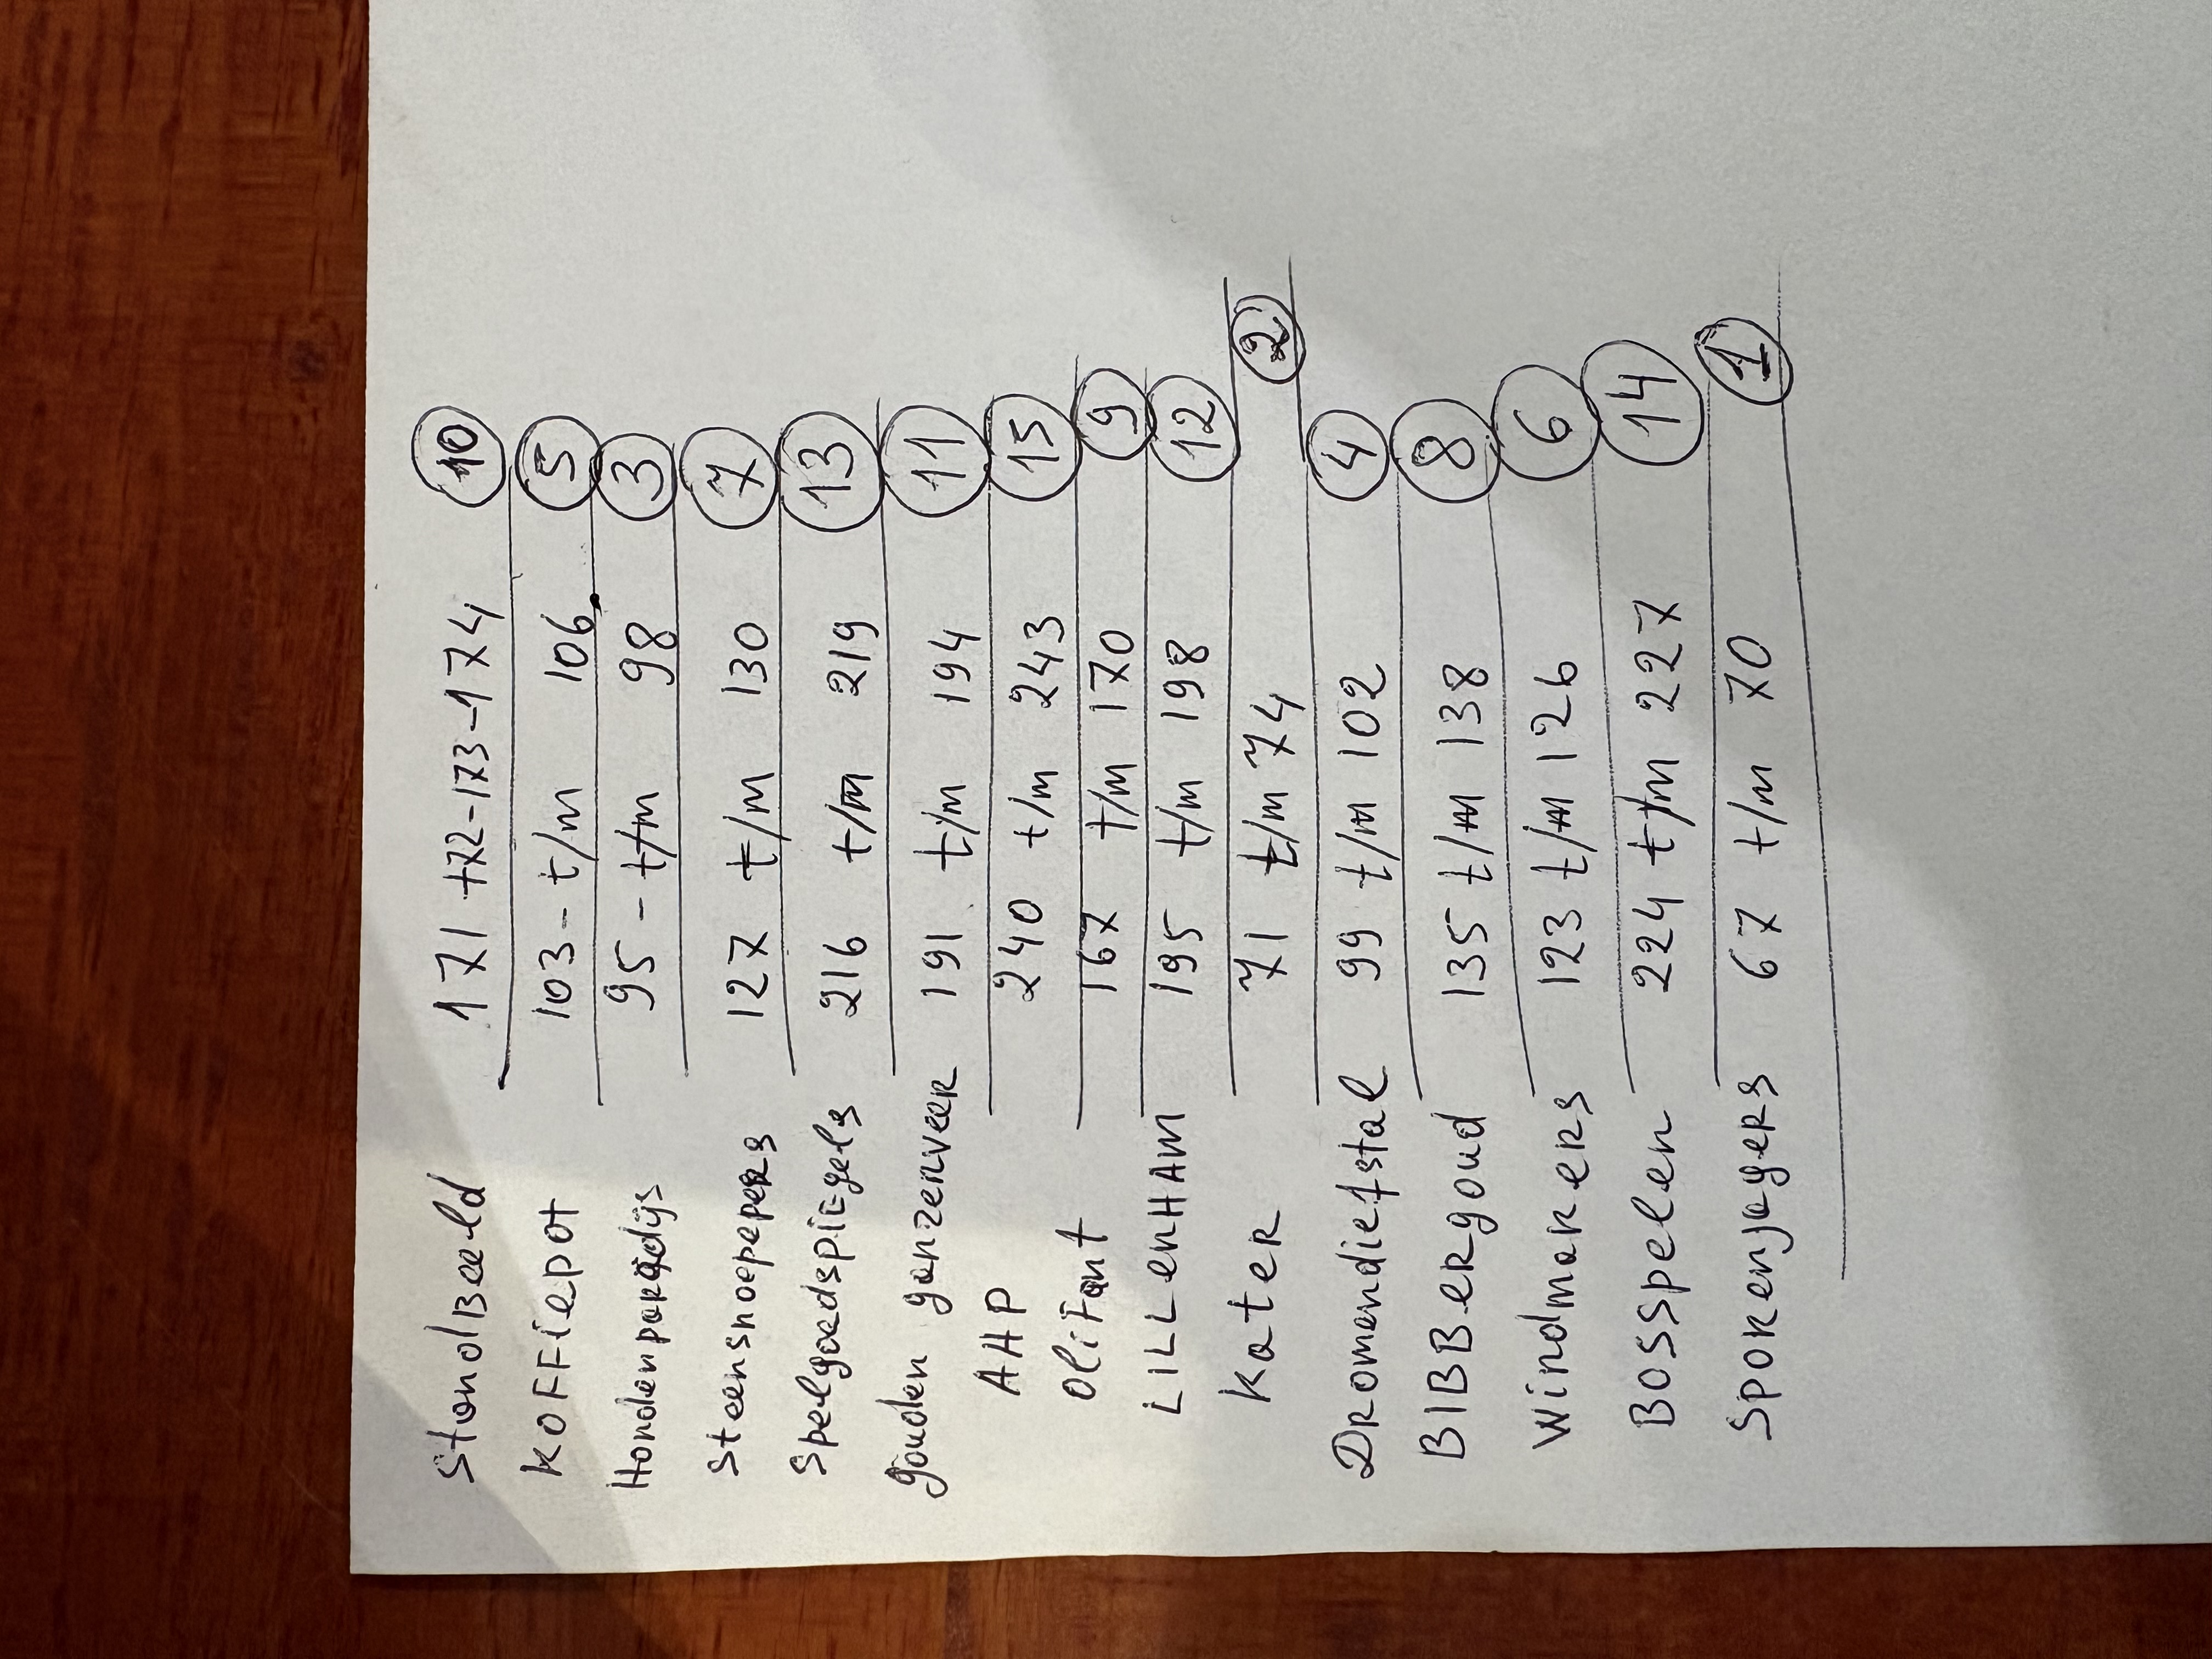 StandBeeld 171 172-173-174 10
KOFFiepot 103- t/m 106 5
Hondenparadijs 95- t/m 98 3
Steensnoepers 127 t/m 130 7
Speelgoedspiegels 216 t/m 219 13
gouden ganzenveer 191 t/m 194 11
AHP 240 t/m 243 15
OliFant 167 t/m 170 9
LILLenHAm 195 t/m 198 12
Kater 71 t/m 74 2
Dromendiefstal 99 t/m 102 4
BIBBergoud 135 t/m 138 8
Windmakers 123 t/m 126 6
BOSSpelen 224 t/m 227 14
Spokenjagers 67 t/m 70 1